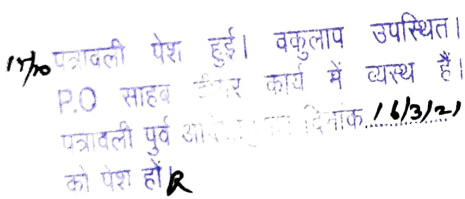 17/10 पत्रावली पेश हुई। वकुलाप उपस्थित।
P.O साहब कार्य में व्यस्थ हैं।
पत्रावली पुर्व दिनांक 16/3/21
को पेश हों